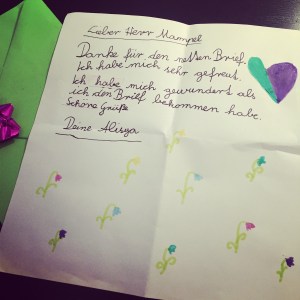 Lieber Herr Mampel
Danke für den netten Brief.
Ich habe mich sehr gefreut.
Ich habe mich gewundert als
ich den Brief bekommen habe.
Schöne Grüße
Deine Alisya